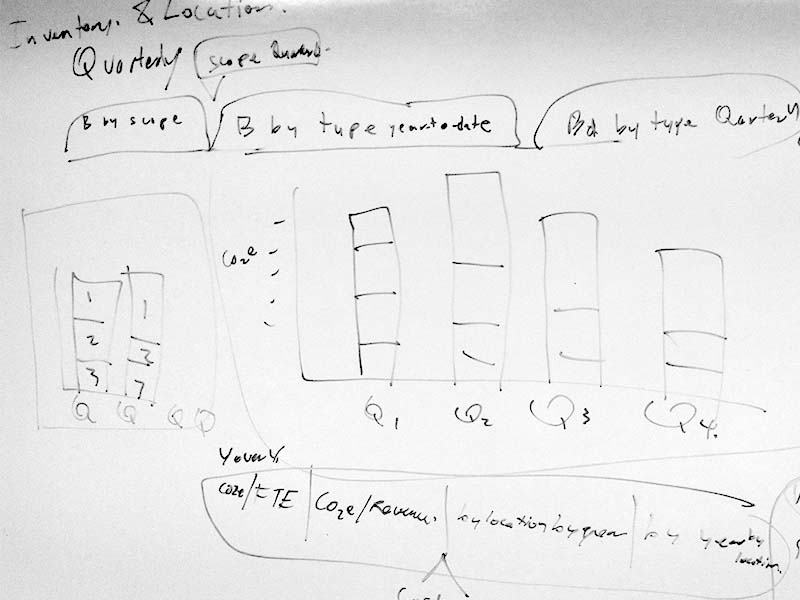 Inventory. & Location.
Quarterly
scope Quarterly.
B by scope
B by type year-to-date
Bd by type Quarterly
CO2e
1
1
2
3
3
Q1
Q2
Q3
Q4.
Q Q Q Q
Y over Y
CO2e/FTE
CO2e/Revenue.
by location by year
by year by
location.